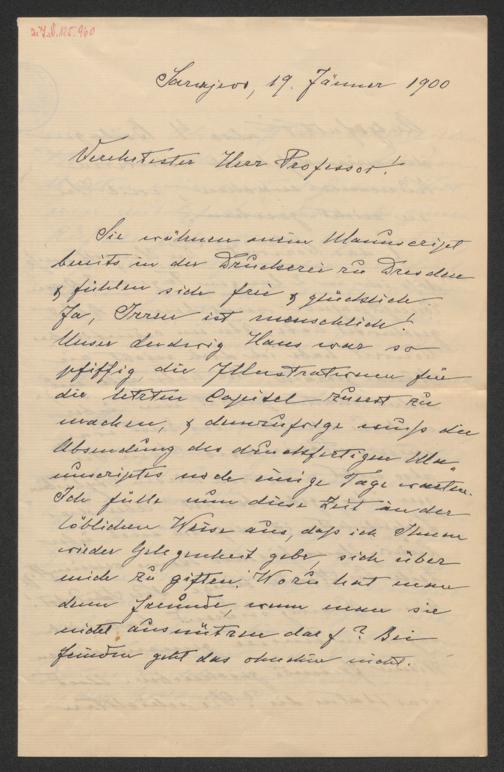 Sarajevo, 19. Jänner 1900
Verehrtester Herr Professor!
Sie wähnen mein Manuscript
bereits in der Druckerei zu Dresden
& fühlen sich frei & glücklich
Ja, Irren ist menschlich!
Unser Ludwig Hans war so
pfiffig die Illustrationen für
die letzten Capitel zuerst zu
machen, & demzufolge muß die
Absendung des druckfertigen Ma„
nuscriptes noch einige Tage warten.
Ich fülle nun diese Zeit in der
löblichen Weise aus, daß ich Ihnen
wieder Gelegenheit gebe, sich über
mich zu giften. Wozu hat man
denn Freunde, wenn man sie
nicht ausnützen darf? Bei
Feinden geht das ohnehin nicht.